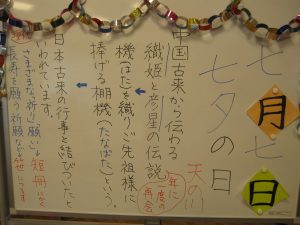 七月七日
七夕の日
中国古来から伝わる
織姫と彦星の伝説
天の川
年に一度の再会
機(はた)を織り、ご先祖様に
捧げる棚機(たなばた)という、
日本古来の行事と結びついたと
いわれています。
さまざまな祈り、願いを短冊に
長寿を願う祈願などを笹につるす